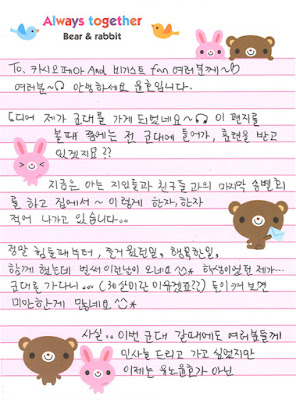 Always together
Bear & rabbit
To. 카시오페아 And 비기스트 fan 여러분께~
여러분~ 안녕하세요 윤호입니다.
드디어 제가 군대를 가게 되었네요~ 이 편지를
볼때 쯤에는 전 군대에 들어가, 훈련을 받고
있겠지요??
지금은 아는 지인들과 친구들과의 마지막 송별회
를 하고 집에서 ~ 이렇게 한자, 한자
적어 나가고 있습니다..
정말 힘들때부터, 즐거웠던일, 행복한일,
함께 했는데 벌써 이런날이 오네요 학생이었던 제가...
군대를 가다니... (30살이라 미웅겠죠??) 돌이켜 보면
미안한게 많네요
사실.. 이번 군대 갈때에도 여러분들께
인사를 드리고 가고 싶었지만
이제는 유노윤호가 아닌